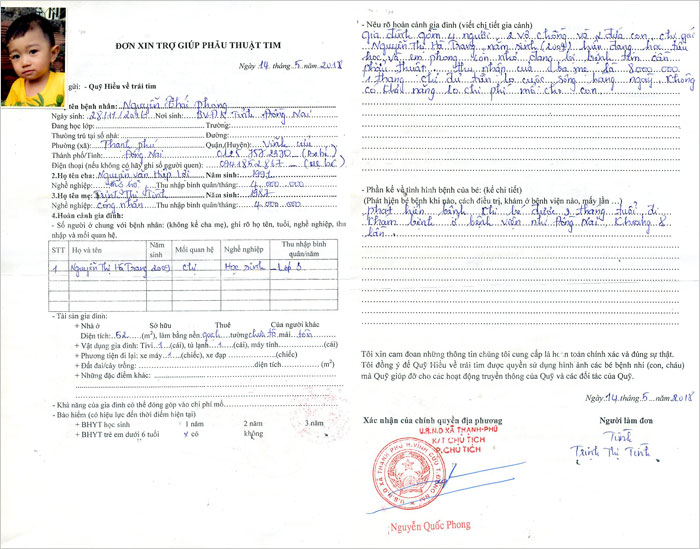 ĐƠN XIN TRỢ GIÚP PHẪU THUẬT TIM
Ngày 14 tháng 5 năm 2018
gửi: - Quỹ Hiểu về trái tim
tên bệnh nhân: Nguyễn Thái Phong
Ngày sinh: 28/11/ Nơi sinh: BVĐK Tỉnh Đồng Nai
Đang học lớp: Trường:
Thường trú tại số nhà: Đường:
Phường (xã): Thạnh phú Quận (Huyện): Vĩnh cửu
Thành phố/Tỉnh: Đồng Nai
Điện thoại (nếu không có hãy ghi số người quen):
2.Họ tên cha: Nguyễn văn Hiệp Lợi Năm sinh: 1991
Nghề nghiệp: Thu nhập bình quân/tháng: 4.000.000
3.Họ tên mẹ: Trịnh Thị Tình Năm sinh: 1987
Nghề nghiệp: công nhân Thu nhập bình quân/tháng: 4.000.000
4.Hoàn cảnh gia đình:
- Số người ở chung với bệnh nhân: (không kể cha mẹ), ghi rõ họ tên, tuổi, nghề nghiệp, thu
nhập và mối quan hệ.
STT Họ và tên Năm sinh Mối quan hệ Nghề nghiệp Thu nhập bình quân/năm
1 Nguyễn Thị Hà Trang 2009 chị Học sinh - Lớp 3
- Tài sản gia đình:
+ Nhà ở Sở hữu Thuê Của người khác
Diện tích: 52 (m²), làm bằng nền gạch tường chưa tô mái tôn
+ Vật dụng gia đình: Tivi 1 (cái), tủ lạnh 1 (cái), máy tính (cái)
+ Phương tiện đi lại: xe máy 1 (chiếc), xe đạp (chiếc)
+ Đất đai/cây trồng: diện tích (m²)
+ Những đặc điểm khác:
- Khả năng của gia đình có thể đóng góp vào chi phí mổ
- Bảo hiểm (có hiệu lực đến thời điểm hiện tại)
+ BHYT học sinh 1 năm 2 năm 3 năm
+ BHYT trẻ em dưới 6 tuổi x có không
- Nêu rõ hoàn cảnh gia đình (viết chi tiết gia cảnh)
Gia đình gồm 4 người, 2 vợ chồng và 2 đứa con, chị gái
Nguyễn Thị Hà Trang năm sinh (2009) hiện đang học tiểu
học và em phong còn nhỏ đang bị bệnh tim cần
phải phẫu thuật, thu nhập của ba mẹ là 8000.000
1 tháng chỉ đủ trang lo cuộc sống hàng ngày không
có khả năng lo chi phí mổ cho con.
- Phần kể về tình hình bệnh của bé: (kể chi tiết)
(Phát hiện bé bệnh khi nào, cách điều trị, khám ở bệnh viện nào, mấy lần...)
phát hiện bệnh khi bé được tháng tuổi đi
khám bệnh ở bệnh viện nhi Đồng Nai khoảng 8
lần.
Tôi xin cam đoan những thông tin chúng tôi cung cấp là hoàn toàn chính xác và đúng sự thật.
Tôi đồng ý để Quỹ Hiểu về trái tim được quyền sử dụng hình ảnh các bé bệnh nhi (con, cháu)
mà Quỹ giúp đỡ cho các hoạt động truyền thông của Quỹ và các đối tác của Quỹ.
Ngày 14 tháng 5 năm 2018
Xác nhận của chính quyền địa phương
U.B.N.D XÃ THẠNH PHÚ
K/T CHỦ TỊCH
P.CHỦ TỊCH
Nguyễn Quốc Phong
Người làm đơn
Tình
Trịnh Thị Tình